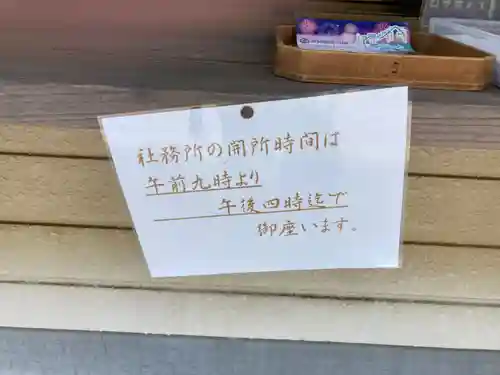 社務所の開所時間は
午前九時より
午後四時迄で
御座います。